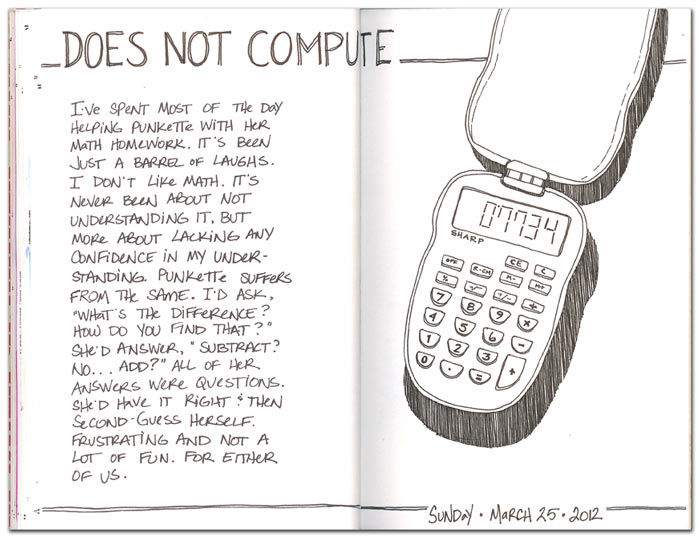 DOES NOT COMPUTE
I'VE SPENT MOST OF THE DAY
HELPING PUNKETTE WITH HER
MATH HOMEWORK. IT'S BEEN
JUST A BARREL OF LAUGHS.
I DON'T LIKE MATH. IT'S
NEVER BEEN ABOUT NOT
UNDERSTANDING IT, BUT
MORE ABOUT LACKING ANY
CONFIDENCE IN MY UNDER-
STANDING. PUNKETTE SUFFERS
FROM THE SAME. I'D ASK,
"WHAT'S THE DIFFERENCE?
HOW DO YOU FIND THAT?"
SHE'D ANSWER, "SUBTRACT?
NO... ADD?" ALL OF HER
ANSWERS WERE QUESTIONS.
SHE'D HAVE IT RIGHT & THEN
SECOND-GUESS HERSELF.
FRUSTRATING AND NOT A
LOT OF FUN. FOR EITHER
OF US.
07734
SHARP
OFF R·CM CE C
% √ M- M+
+/- ÷
7 8 9 ×
4 5 6 -
1 2 3
0 . = +
SUNDAY · MARCH 25 · 2012